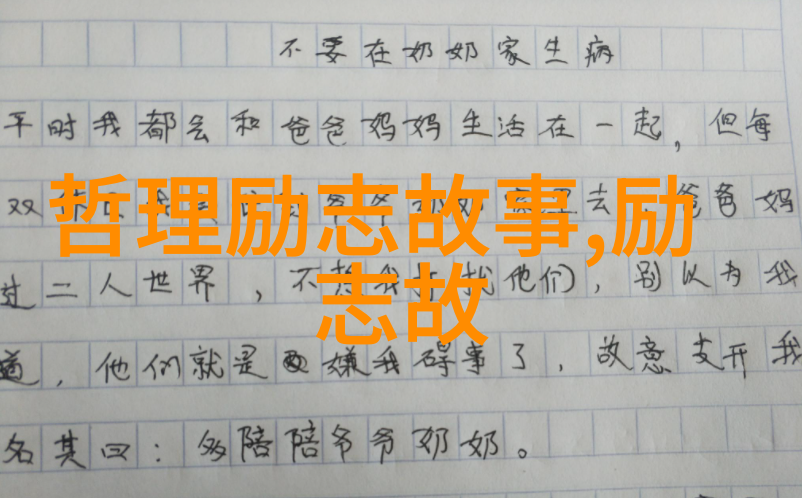 不要在奶奶家生病
平时我都会和爸爸妈妈生活在一起，但每
双 去 爸爸妈
过二人世界，不 他们，别以为我
道，他们就是嫌我碍事了，故意支开我
名其曰：多陪陪爷爷奶奶。
哲理励志故事,励
志故